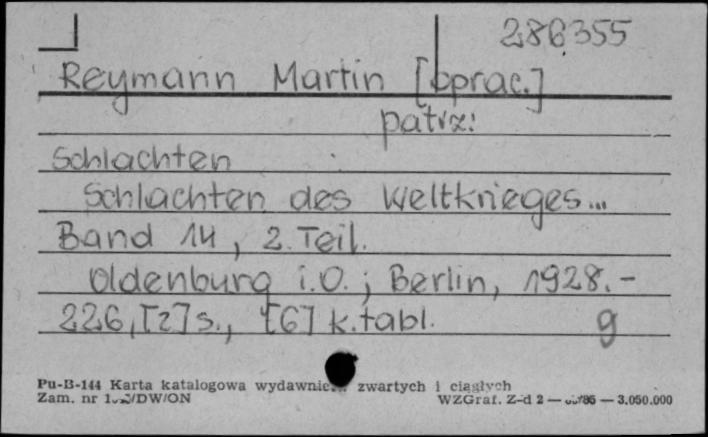 286355
Reymann Martin [oprac.]
patrz:
Schlachten
Schlachten des Weltkrieges...
Band 14, 2. Teil.
Oldenburg i.O.; Berlin, 1928.-
226,[2]s., [6] k.tabl. g
Pu-B-144 Karta katalogowa zwartych i ciągłych
Zam. nr WZGraf. Z-d 2 — — 3.050.000